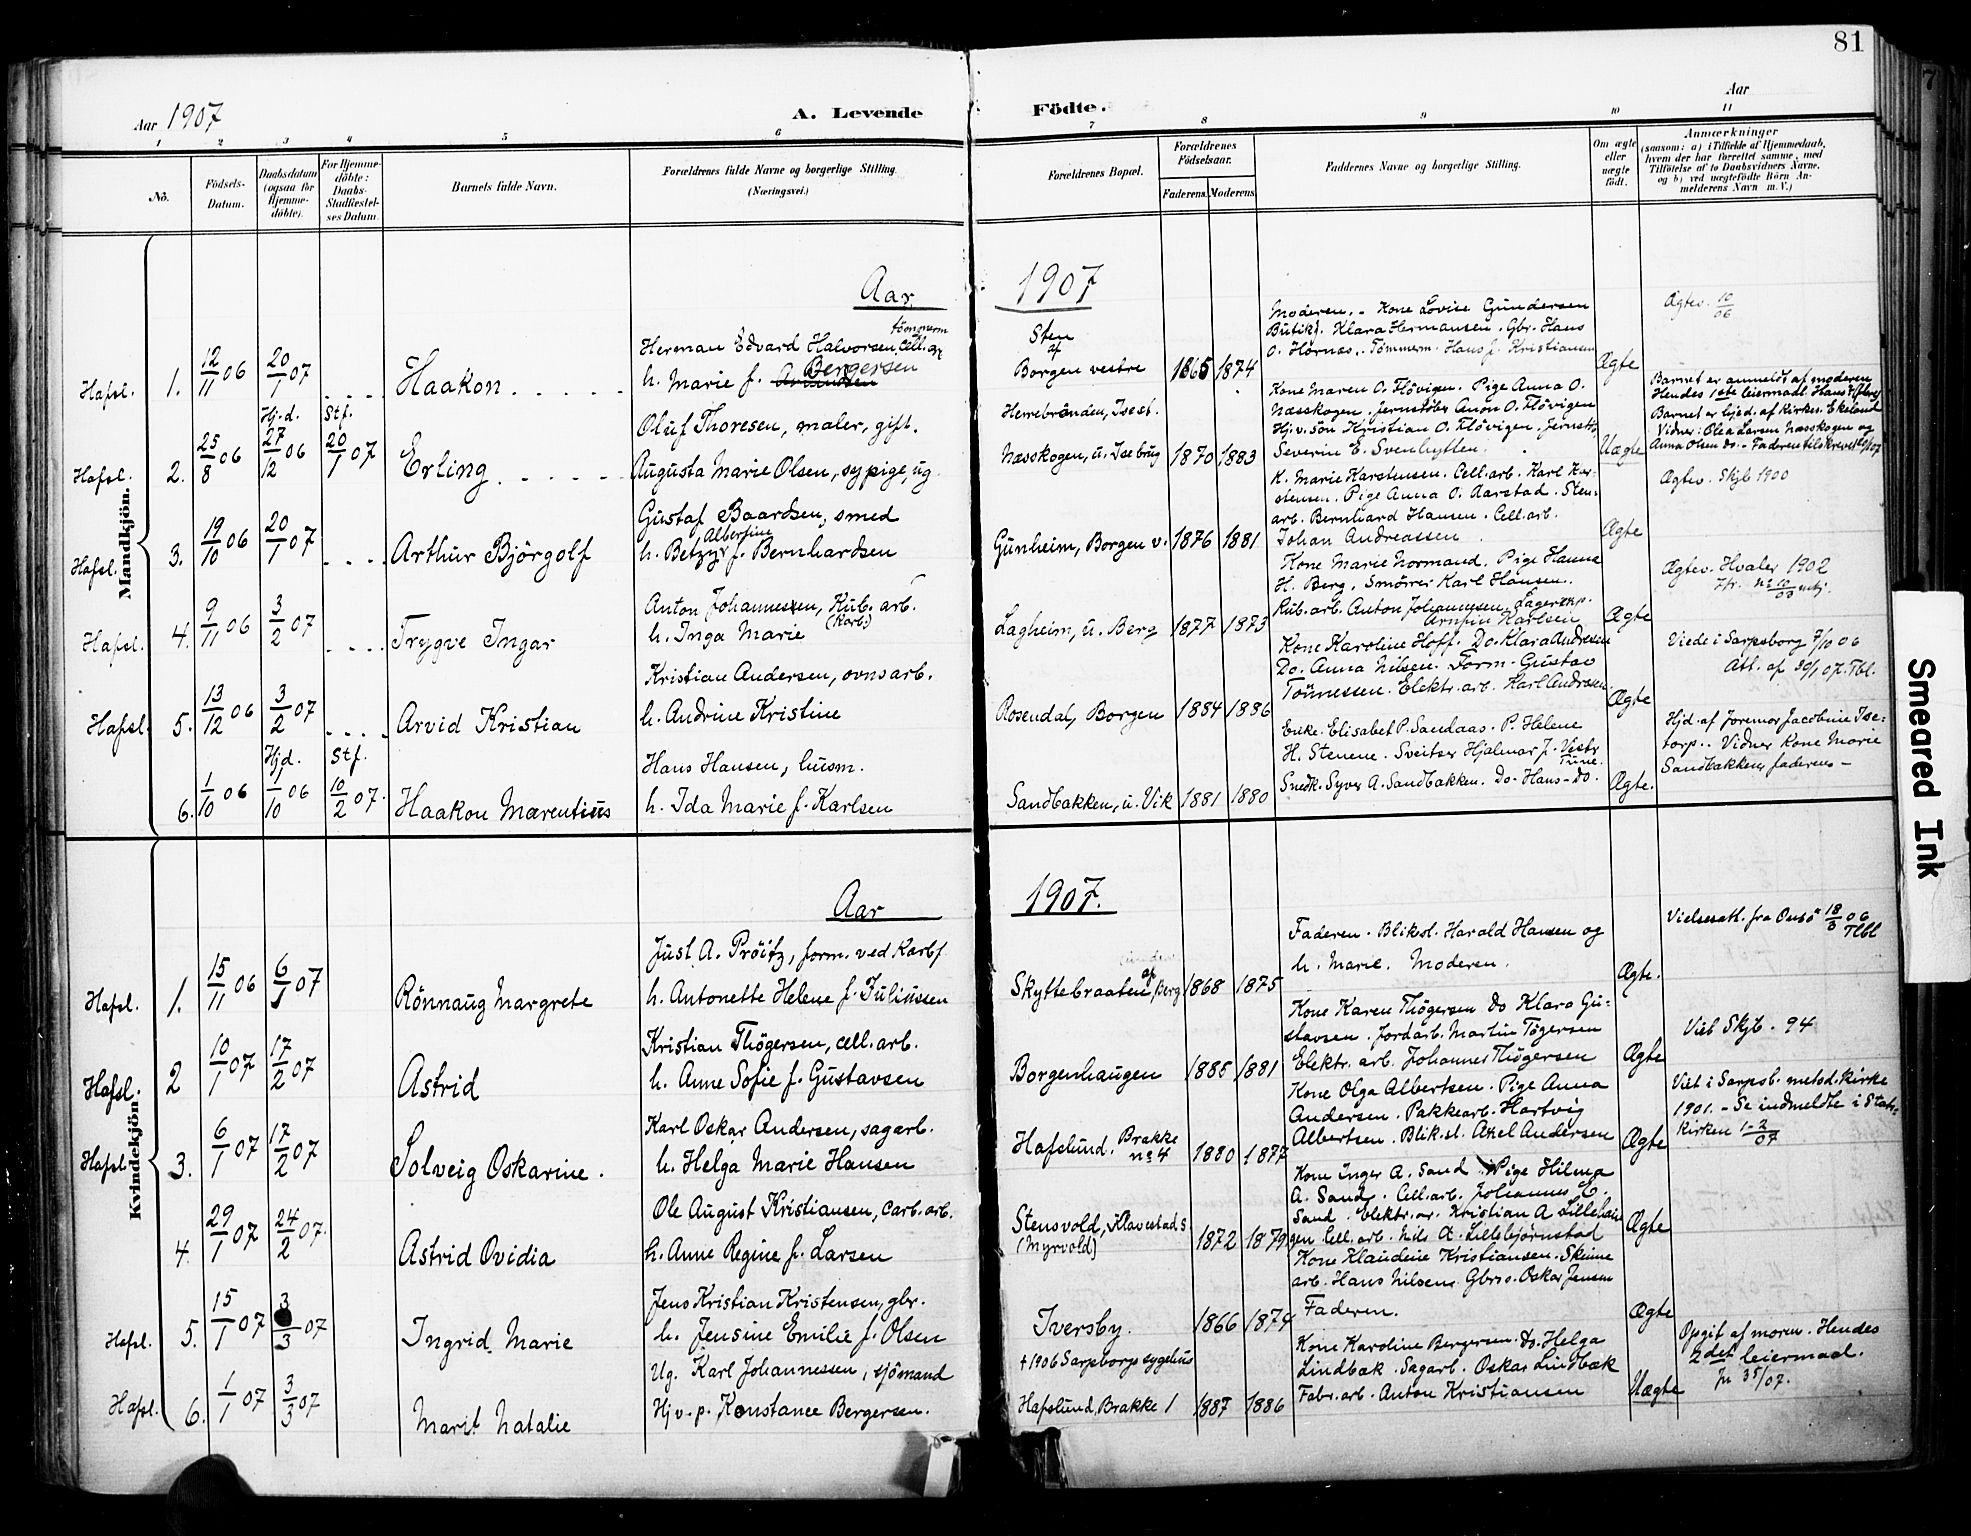 81
Aar 1907
A. Levende Födte.
Aar
1 2 3 4 5 6 7 8 9 10 11
Nô.
Födsels-Datum.
Daabsdatum (ogsaa for Hjemme-döbte).
For Hjemme-döbte: Daabs-Stadfæstel-ses Datum.
Barnets fulde Navn.
Forældrenes fulde Navne og borgerlige Stilling. (Næringsvei.)
Forældrenes Bopæl.
Forældrenes Födselsaar.
Faderens. Moderens.
Faddernes Navne og borgerlige Stilling.
Om ægte eller uægte födt.
Anmærkninger
(saasom: a) i Tilfælde af Hjemmedaab,
hvem der har forrettet samme, med
Tilföielse af to Daabsvidners Navne.
og b) ved uægtefödte Börn An-
melderens Navn m. V.)
Mandkjön.
Aar 1907
Hafsl. 1. 12/11 06 20/1 07 Haakon
Herman Edvard Halvorsen, cell. ar tömmerm
h. Marie f. Bergersen
Sten af
Borgen vestre 1865 1874
Moderen. - Kone Lovise Gundersen
Butikd. Klara Hermansen. Gbr. Hans
O. Hörnæs. Tömmerm. Hans J. Kristiansen
Ægte
Ægtev. 10/06
Hafsl. 2. 25/8 06 Hjd. 27/12 06 Stf. 20/1 07 Erling
Oluf Thoresen, maler, gift.
Augusta Marie Olsen, sypige, ug.
Herrebränden, Isest.
Næsskogen, u. Isebrug 1870 1883
Kone Maren O. Flövigen. Pige Anna O.
Næsskogen. Jernstöber Anon O. Flövigen
Hjv. sön Kristian O. Flövigen, jernstb.
Severin E. Svenhytten.
Uægte
Barnet er anmeldt af moderen
Hendes 1ste leiermaal. Hans
Barnet er hjed. af Kirkes. Ekelund
Vidner: Olea Larsen Næsskogen og
Anna Olsen do. - Faderen tilskrevet 20/1 07
Hafsl. 3. 19/10 06 20/1 07 Arthur Björgolf
Gustaf Baardsen, smed
h. Betzy Albertine f. Bernhardsen
Gunheim, Borgen v. 1876 1881
K. Marie Karstensen. Cell.arb. Karl Kar-
stensen. Pige Anna O. Aarstad. Sten-
arb. Bernhard Hansen. Cell.arb.
Johan Andreassen
Ægte
Ægtev. Skjb 1900
Hafsl. 4. 9/11 06 3/2 07 Trygve Ingar
Anton Johannessen, Kub. arb.
h. Inga Marie (Karb.)
Lagheim, u. Berg 1877 1873
Kone Marie Normand. Pige Hanna
H. Berg. Smörrer Karl Hansen.
Kub. arb. Anton Johannesen. Lagerexp.
Arnfin Karlsen
Ægte
Ægtev. Hvaler 1902
Hafsl. 5. 13/12 06 3/2 07 Arvid Kristian
Kristian Andersen, ovnsarb.
h. Andrine Kristine
Rosendal, Borgen 1884 1886
Kone Karoline Hoff. Do. Klara Andresen
Do. Anna Nilsen. Form. Gustav
Tönnessen. Elektr. arb. Karl Andresen
Ægte
Viede i Sarpsborg 7/10 06
Att. af 30/1 07. Tbl.
Hafsl. 6. 1/10 06 Hjd. 1/10 06 Stf. 10/2 07. Haakon Marentius
Hans Hansen, husm.
h. Ida Marie f. Karlsen
Sandbakken, u. Vik 1881 1880
Enke. Elisabet P. Sandaas. P. Helene
H. Stenene. Sveitser Hjalmar J. Vestr
Tune.
Snedk. Syver A. Sandbakken. Do. Hans - do.
Ægte.
Hjd. af Jormor Jacobine Ise-
torp. Vidner Kone Marie
Sandbakken, faderen -
Kvindekjön
Aar 1907.
Hafsl. 1. 15/11 06 6/1 07 Rönnaug Margrete
Just A. Pröitz, form. ved Karbf
h. Antonette Helene f. Juliussen
Skyttebraaten af Berg 1868 1875
Faderen. Bliksl. Harald Hansen og
h. Marie. Moderen.
Ægte.
Vielsesatt. fra Onsö 18/3 06
Tlbl
Hafsl. 2 10/1 07 17/2 07 Astrid
Kristian Thögersen, cell. arb.
h. Anne Sofie f. Gustavsen
Borgenhaugen 1885 1881
Kone Karen Thögersen Do Klara Gu-
stavsen. Jordarb. Martin Tögersen
Elektr. arb. Johannes Thögersen
Ægte
Viet Skjb. 94
Hafsl. 3. 6/1 07 17/2 07 Solveig Oskarine.
Karl Oskar Andersen, sagarb.
h. Helga Marie Hansen
Hafslund. Brakke nº 4 1880 1877
Kone Olga Albertsen. Pige Anna
Andersen. Pakkearb. Hartvig
Albertsen. Blik.sl. Axel Andersen
Ægte
Viet i Sarpsb. metod. kirke
1901. - Se indmeldte i Stats-
kirken 1-2/07
4. 29/1 07 24/2 07. Astrid Ovidia
Ole August Kristiansen, carb. arb.
h. Anne Regine f. Larsen
Stensvold, i Klavestad s.
(Myrvold) 1872 1879
Kone Inger A. Sand Pige Hilma
A. Sand. Cell.arb. Johannes E.
Sand. Elektr. ar. Kristian A Lillehau
gen Cell. arb. Nils A. Lillebjørnstad
Ægte
Hafsl. 5. 15/1 07 3/3 07 Ingrid Marie
Jens Kristian Kristensen, gbr.
h. Jensine Emilie f. Olsen
Iversby. 1866 1874
Kone Klaudine Kristiansen. Skinne
arb. Hans Nilsen. Gbrs. Oskar Jensen
Faderen.
Ægte
Hafsl. 6. 1/1 07 3/3 07 Marit Natalie
Ug. Karl Johannessen, sjömand
Hjv. p. Konstance Bergersen.
† 1906 Sarpborgs sygehus
Hafslund, Brakke 1 1887 1886
Kone Karoline Bergersen. Do. Helga
Lindbæk. Sagarb. Oskar Lindbæk
Fabr. arb. Anton Kristiansen
Uægte
Opgit af moren. Hendes
2det leiermaal.
Smeared Ink